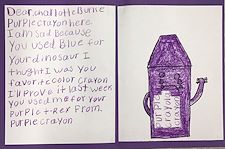 Dear,charlotte Burke
Purplecrayon here.
I am sad because
You used Blue for
Your dinosaur I
thught I was you
favoritcolor crayon
I'll prove it last week
you used me for your
PurPle tree From.
PurPle crayon
PurPle
crayon